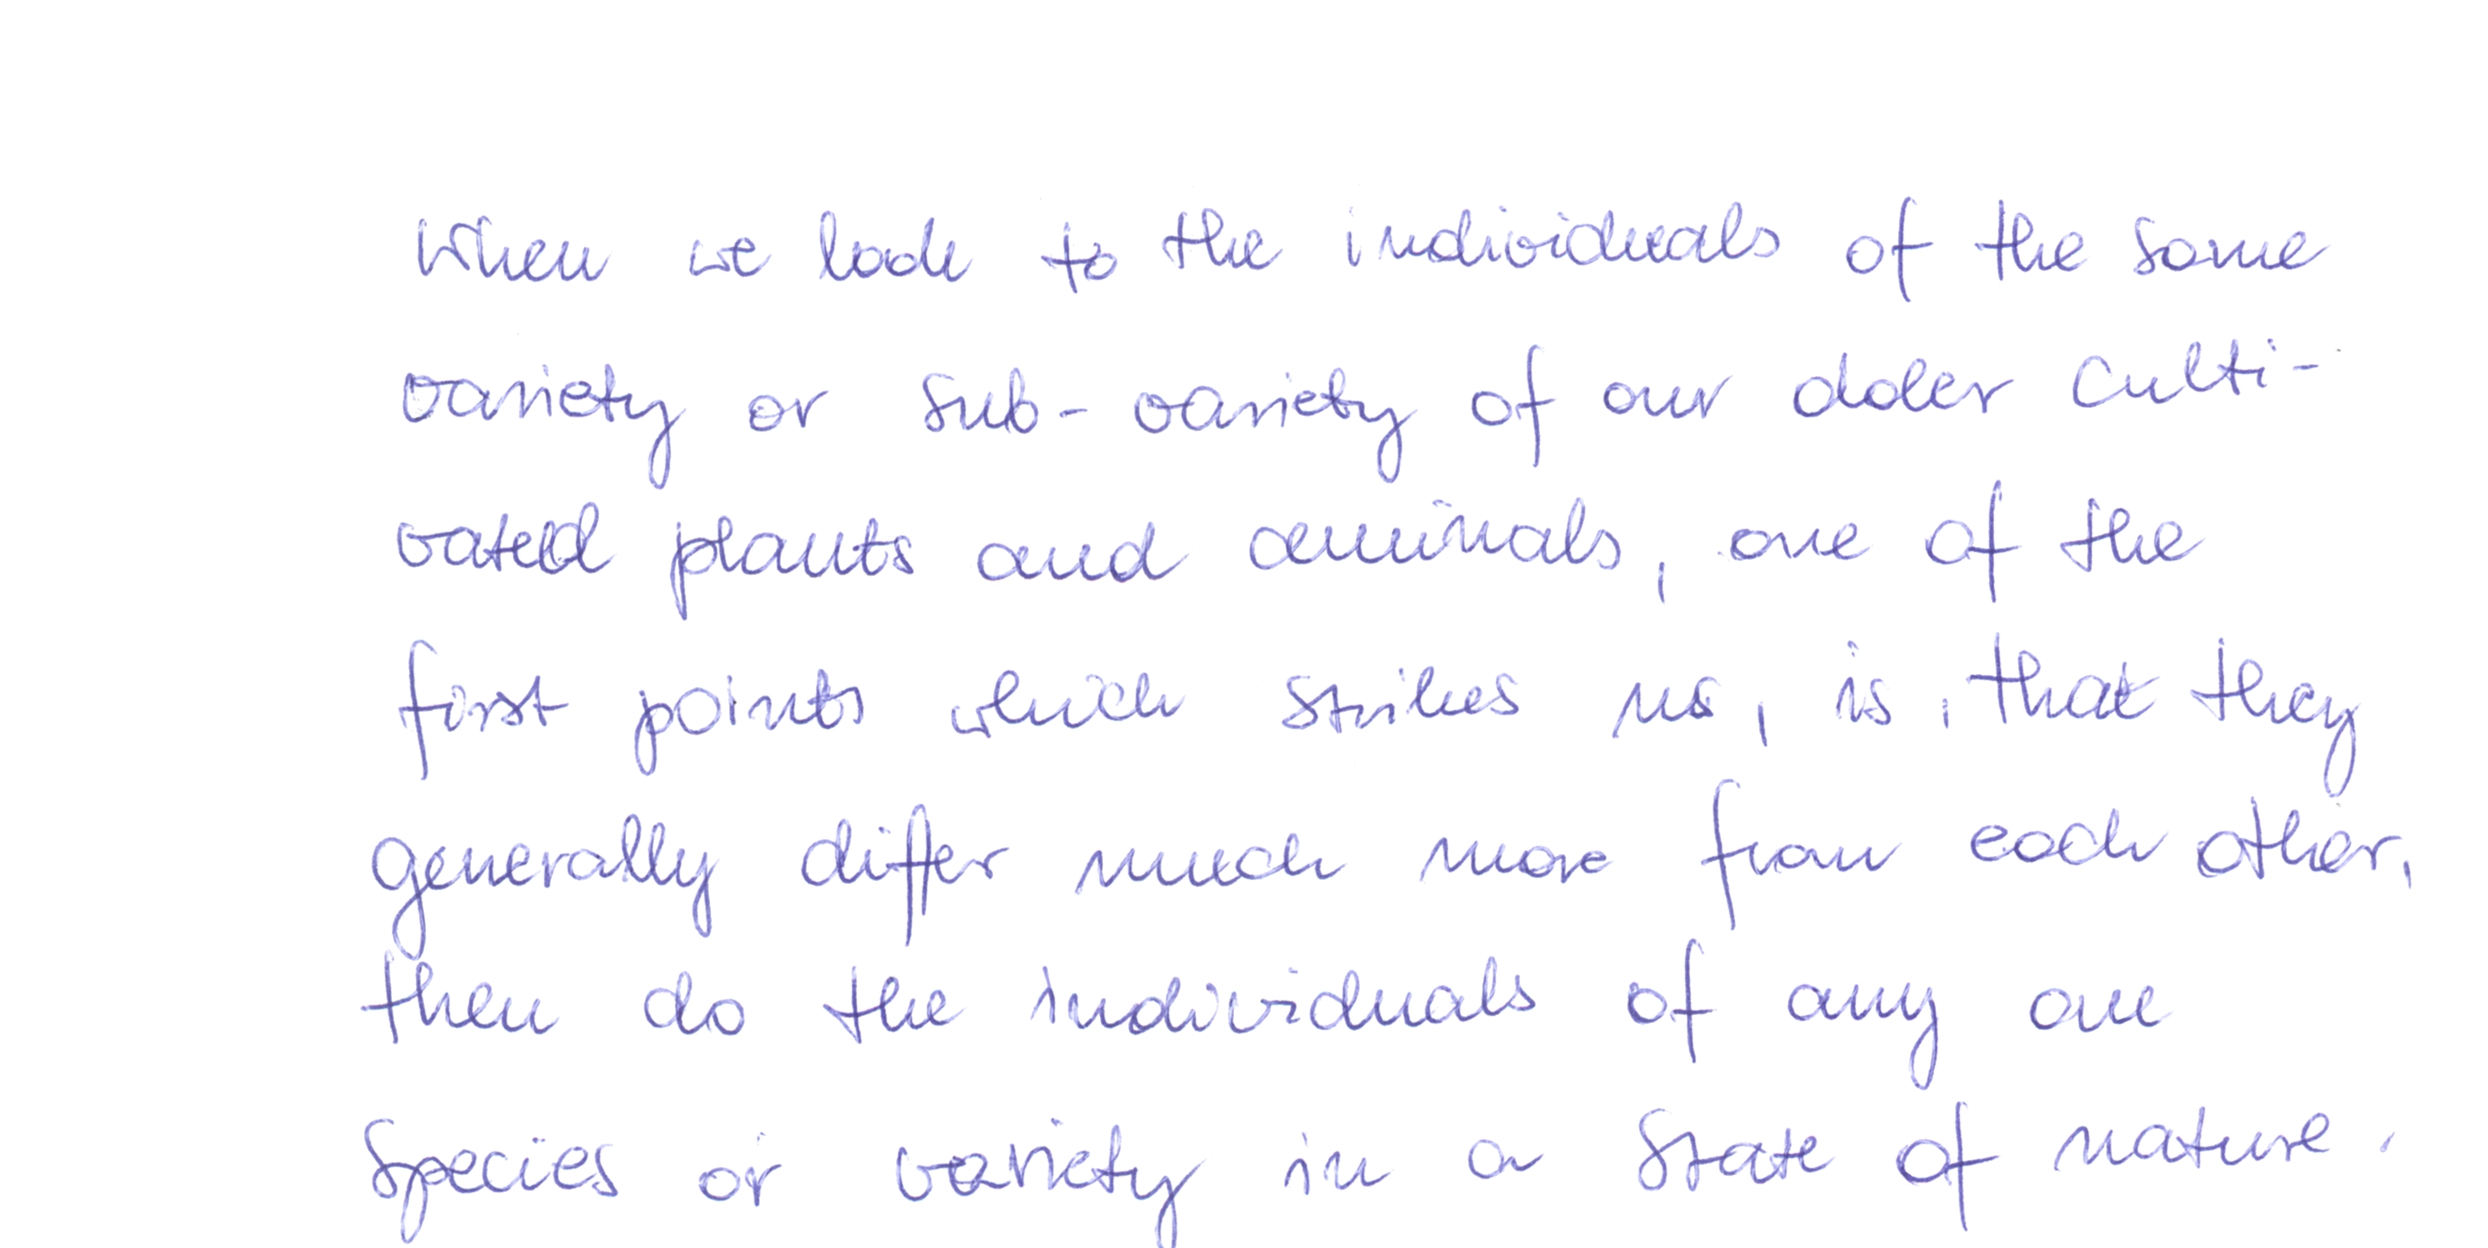 When we look to the individuals of the same
variety or sub-variety of our older culti-
vated plants and animals, one of the
first points which strikes us, is, that they
generally differ much more from each other,
then do the individuals of any one
species or variety in a state of nature.